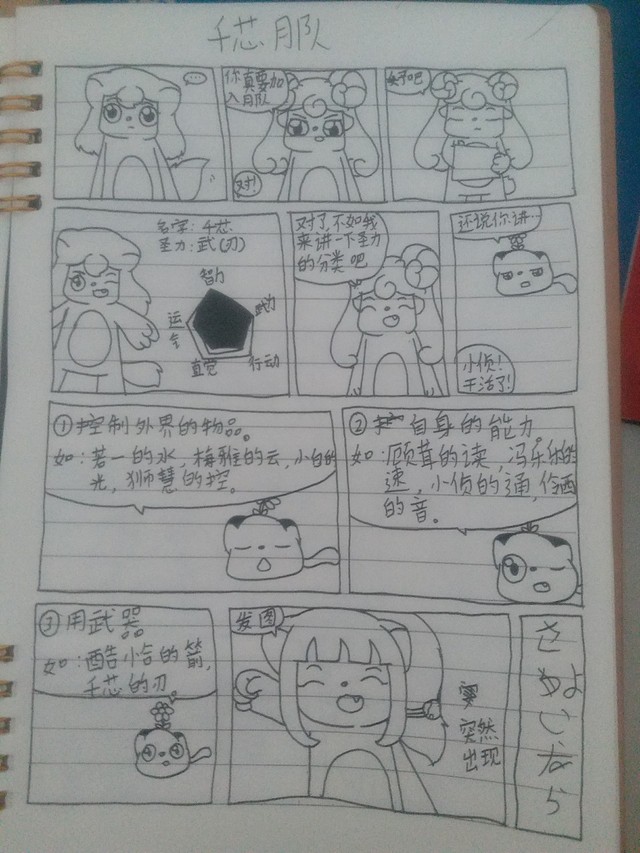 千芯 月队
你真要加
入月队
对!
好吧
名字:千芯
圣力:武(刃)
智力
武力
行动
直觉
运气
对了,不如我
来讲一下圣力
的分类吧
还说你讲…
小侦!
干活了!
①控制外界的物品。
如:若一的水,梅雅的云,小白的
光,狮慧的控。
②自身的能力
如:顾茸的读,冯乐乐的
速,小侦的通,伶西
的音。
③用武器
如:酷小合的箭,
千芯的刃
发图
突然
出现